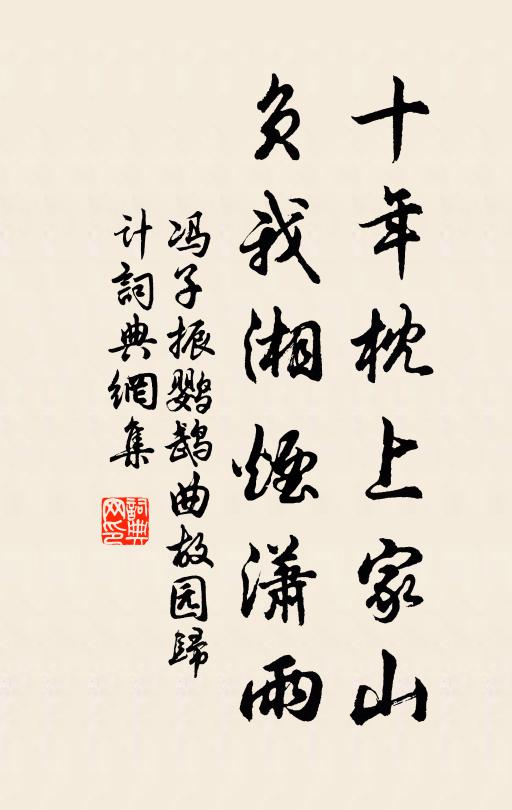 十年枕上家山
负我湘烟潇雨
冯子振鹦鹉曲故园歸
计詞典網集
詞典网印